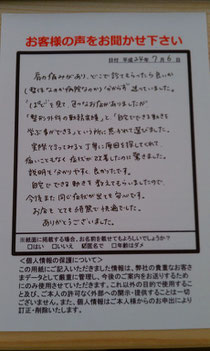 お客様の声をお聞かせ下さい
日付 平成24年 7月 6日
肩の痛みがあり、どこで診てもらったら良いか
(整体なのか病院なのか)分からず迷っていました。
"整形外科の勤務実績"と"自宅でできる動きを
学ぶ事ができる"という所に惹かれて選びました。
実際でみてみると丁寧に原因を探してくれて、
痛いこともなく症状が改善したのに驚きました。
説明も分かりやすく良かったです。
自宅でできる動きを教えてもらいましたので、
今後また同じ症状が出ても安心です。
お店もとても綺麗で快適でした。
ありがとうございました。
※紙面に掲載する場合、お名前を載せてもよろしいでしょうか?
□はい □いいえ 匿名で □年齢はダメ
<個人情報の保護について>
この用紙にご記入いただきました情報は、弊社の貴重なお客さ
まデータとして厳重に管理し、今後のご案内をお送りするため
にのみ使用させていただきます。これ以外の目的で使用するこ
と及び、ご本人の許可なく外部への開示・提供することは一切
ございません。また、個人情報はご本人様からのお申出により
訂正・削除いたします。